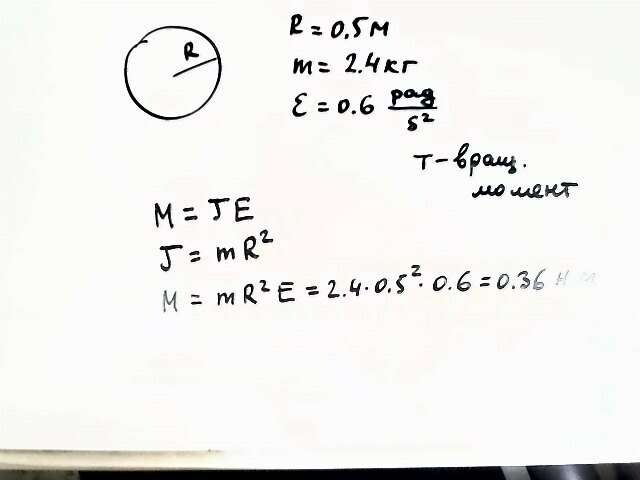 R
R = 0.5м
m = 2.4кг
ε = 0.6 рад/s²
T-вращ.
момент
M = JE
J = mR²
M = mR²E = 2.4·0.5²·0.6 = 0.36 н м